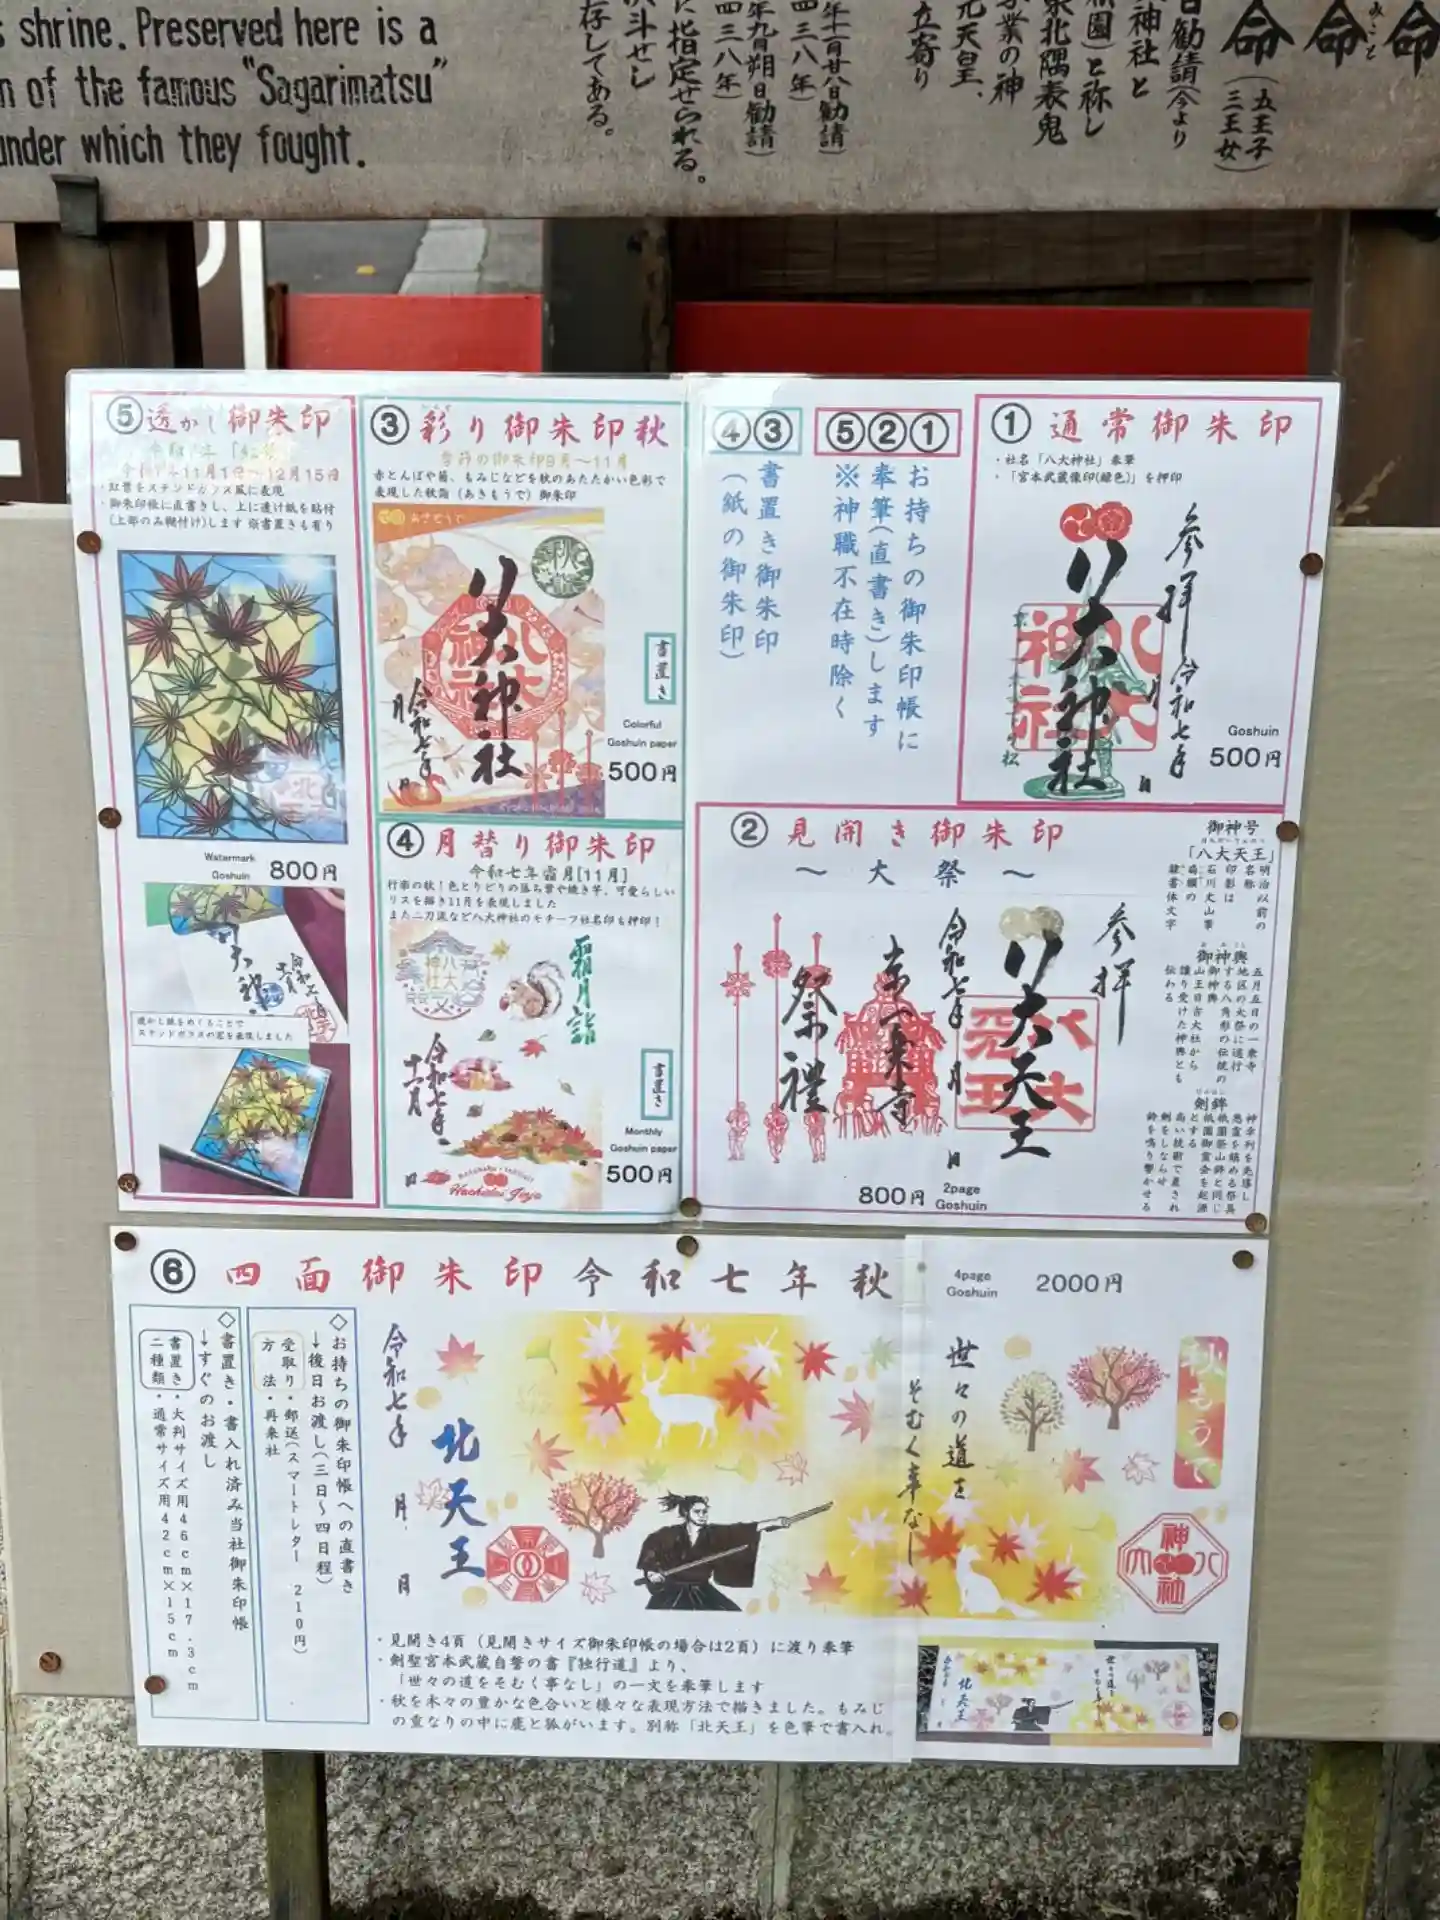 s shrine. Preserved here is a
n of the famous "Sagarimatsu"
under which they fought.
命 命 命
(五王子
三王女)
日勧請(今より
神社と
祇園)と祢し
東北隅表鬼
業の神
元天皇、
立寄り
年二月廿八日勧請)
四三八年)
年九月朔日勧請)
四三八年)
に指定せられる。
斗せし
存してある。
①通常御朱印
・社名「八大神社」奉筆
・「宮本武蔵像印(緑色)」を押印
参拝
八大神社
八大神社
令和七年
月
日
Goshuin
500円
⑤②①
お持ちの御朱印帳に
奉筆(直書き)します
※神職不在時除く
④③
書置き御朱印
(紙の御朱印)
③彩り御朱印秋
季節の御朱印9月〜11月
赤とんぼや菊、もみじなどを秋のあたたかい色彩で
表現した秋詣(あきもうで)御朱印
あきもうで
秋詣
八大神社
令和七年
月
日
書置き
Colorful
Goshuin paper
500円
⑤透かし御朱印
令和7年11月1日〜12月15日
・紅葉をステンドグラス風に表現
・御朱印帳に直書きし、上に透け紙を貼付
(上部のみ糊付け)します ※書置きも有り
Watermark
Goshuin
800円
透かし紙をめくることで
ステンドグラスの窓を表現しました
④月替り御朱印
令和七年霜月[11月]
行楽の秋!色とりどりの落ち葉や焼き芋、可愛らしい
リスを描き11月を表現しました
また二刀流など八大神社のモチーフ社名印も押印!
八大神社
霜月詣
令和七年
十一月
日
Hachidai Jinja
書置き
Monthly
Goshuin paper
500円
②見開き御朱印
〜大祭〜
参拝
八大天王
令和七年 月 日
京一乗寺
祭禮
800円
2page
Goshuin
御神号
「八大天王」
明治以前の
名称
印影は
石川丈山筆
扁額の
隷書体文字
御神輿
五月五日の一乗寺
地区の大祭に巡行
する八角形の伝統の
御神輿
山王日吉大社から
譲り受けた神輿とも
伝わる
剣鉾
神幸列を先導し
悪霊を鎮める祭具
祇園祭山鉾と同じ
祇園御霊会を起源
とする
高い技術で差され
剣をしならせ
鈴を鳴り響かせる
⑥四面御朱印令和七年秋
4page
Goshuin
2000円
◇お持ちの御朱印帳への直書き
→後日お渡し(三日〜四日程)
受取り方法・郵送(スマートレター 210円)
・再来社
◇書置き・書入れ済み当社御朱印帳
→すぐのお渡し
書置き二種類・大判サイズ用46cm×17.3cm
・通常サイズ用42cm×15cm
令和七年 月 日
北天王
世々の道を
そむく事なし
秋もうで
八大神社
・見開き4頁(見開きサイズ御朱印帳の場合は2頁)に渡り奉筆
・剣聖宮本武蔵自誓の書『独行道』より、
「世々の道をそむく事なし」の一文を奉筆します
・秋を木々の豊かな色合いと様々な表現方法で描きました。もみじ
の重なりの中に鹿と狐がいます。別称「北天王」を色筆で書入れ。